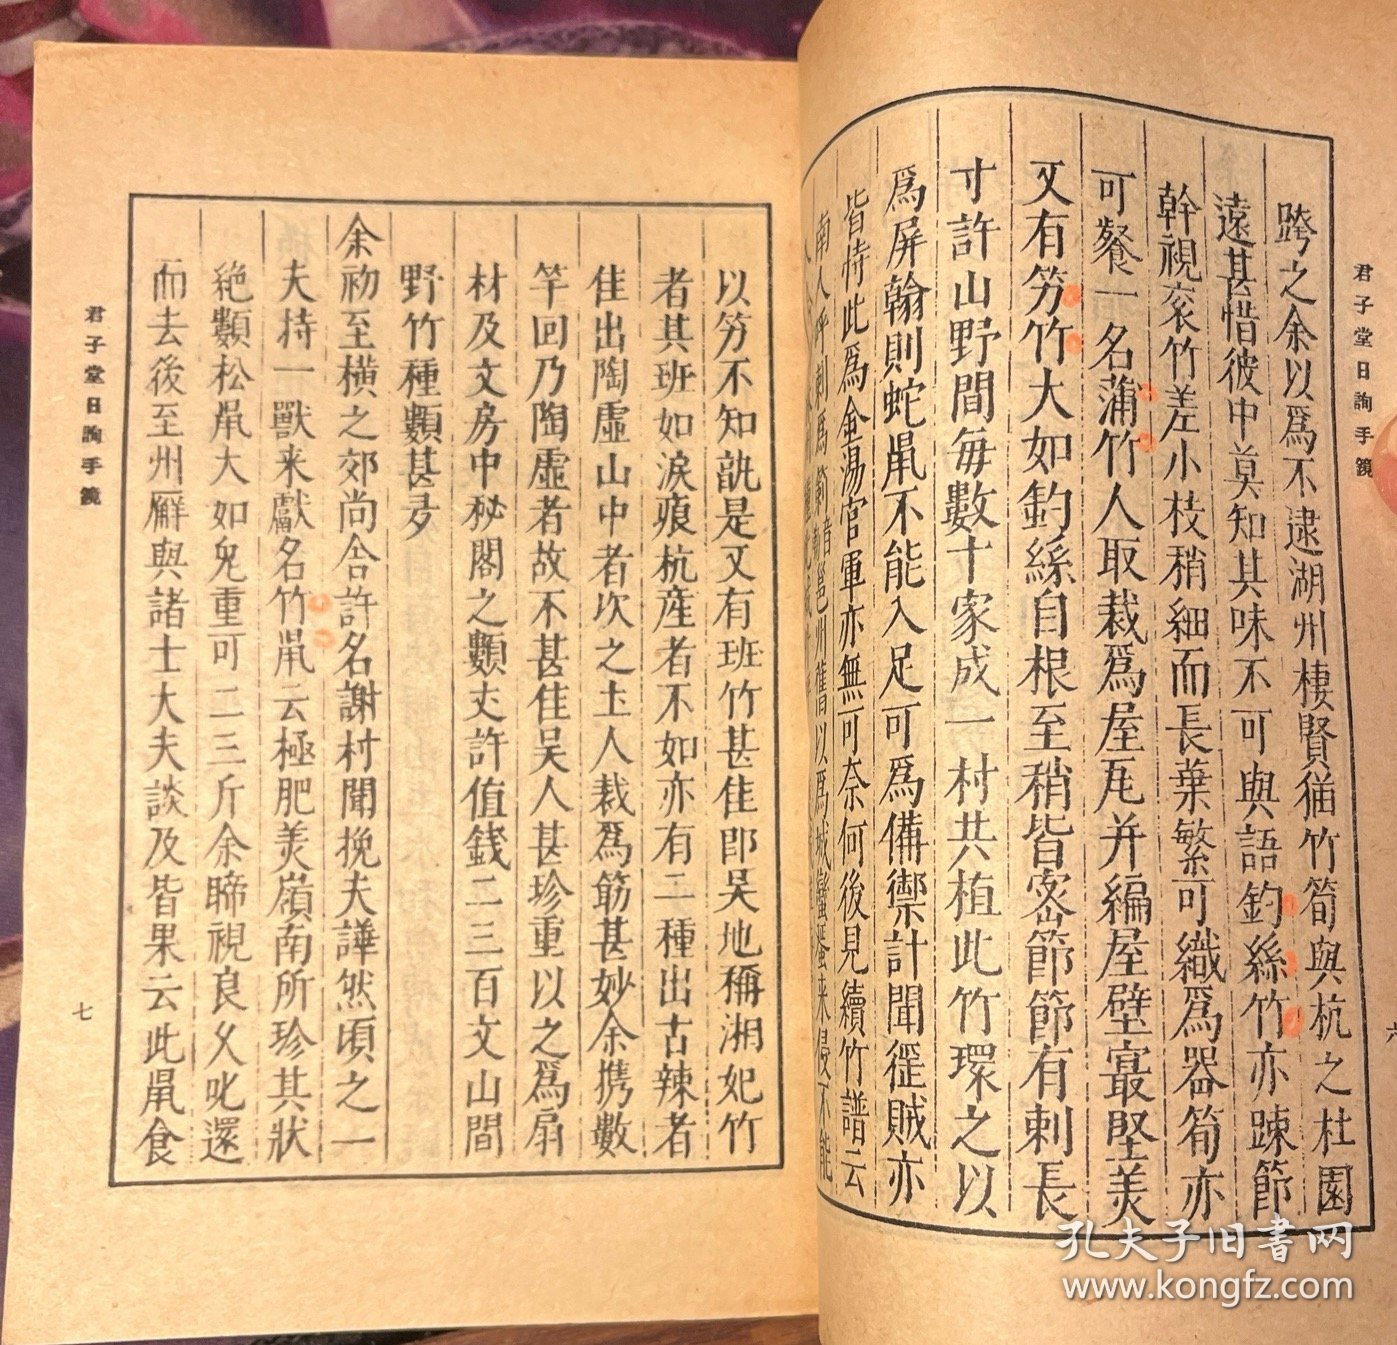 君子堂日詢手鏡
跨之余以爲不逮湖州棲賢猫竹筍與杭之杜園
遠甚惜彼中莫知其味不可與語釣絲竹亦踈節
幹視衮竹差小枝稍細而長葉繁可織爲器筍亦
可餐一名蒲竹人取裁爲屋瓦并編屋壁寔堅美
又有竻竹大如釣絲自根至稍皆密節節有刺長
寸許山野間每數十家成一村共植此竹環之以
爲屏翰則蛇鼠不能入足可爲備禦計聞徭賊亦
皆恃此爲金湯官軍亦無可奈何後見續竹譜云
南人呼刺爲竻邕州舊以爲城蠻蜑來侵不能
以竻不知説是又有班竹甚佳即吴地稱湘妃竹
者其班如淚痕杭産者不如亦有二種出古辣者
佳出陶虛山中者次之土人裁爲筯甚妙余携數
竿回乃陶虛者故不甚佳吴人甚珍重以之爲扇
材及文房中秘閣之類丈許值錢二三百文山間
野竹種類甚多
余初至横之郊尚舍許名謝村聞挽夫譁然頃之一
夫持一獸来獻名竹鼠云極肥美嶺南所珍其狀
絶類松鼠大如兔重可二三斤余睇視良久叱還
而去後至州廨與諸士大夫談及皆果云此鼠食
君子堂日詢手鏡
七
孔夫子旧书网
www.kongfz.com